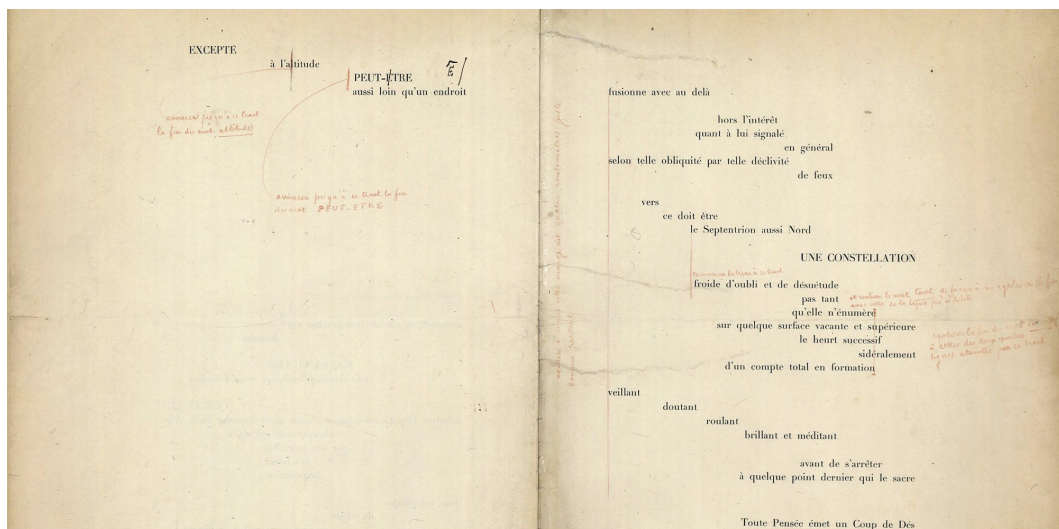 EXCEPTÉ
à l'altitude
PEUT-ETRE
Ê/
aussi loin qu'un endroit
avancer jusqu'à ce trait
la fin du mot altitude
avancer jusqu'à ce trait la fin
du mot PEUT-ETRE
fusionne avec au delà
hors l'intérêt
quant à lui signalé
en général
selon telle obliquité par telle déclivité
de feux
vers
ce doit être
le Septentrion aussi Nord
UNE CONSTELLATION
à ce trait
froide d'oubli et de désuétude
pas tant
qu'elle n'énumère
sur quelque surface vacante et supérieure
le heurt successif
sidéralement
d'un compte total en formation
veillant
doutant
roulant
brillant et méditant
avant de s'arrêter
à quelque point dernier qui le sacre
Toute Pensée émet un Coup de Dés